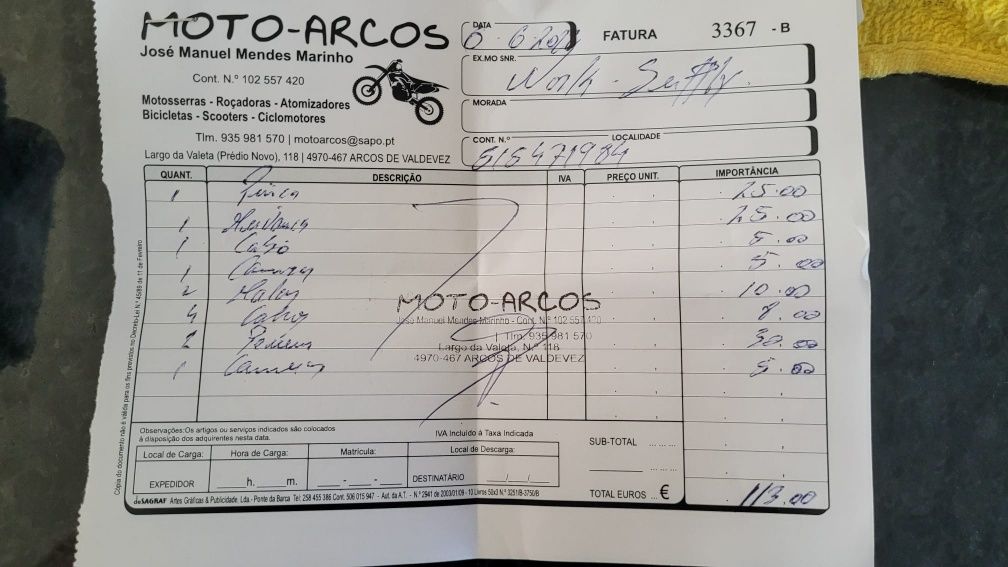 MOTO-ARCOS
José Manuel Mendes Marinho
Cont. N.º 102 557 420
Motosserras - Roçadoras - Atomizadores
Bicicletas - Scooters - Ciclomotores
Tlm. 935 981 570 | motoarcos@sapo.pt
Largo da Valeta (Prédio Novo), 118 | 4970-467 ARCOS DE VALDEVEZ
DATA
FATURA 3367 - B
EX.MO SNR.
Work
MORADA
CONT. N.º LOCALIDADE
515471984
QUANT. DESCRIÇÃO IVA PREÇO UNIT. IMPORTÂNCIA
1 25.00
1 25.00
1 Cabo 5.00
1 5.00
2 10.00
4 8.00
2 30.00
1 5.00
MOTO-ARCOS
José Manuel Mendes Marinho - Cont. N.º 102 557 420
Tlm. 935 981 570
Largo da Valeta, N.º 118
4970-467 ARCOS DE VALDEVEZ
Observações: Os artigos ou serviços indicados são colocados
à disposição dos adquirentes nesta data.
IVA Incluído à Taxa Indicada
SUB-TOTAL
Local de Carga: Hora de Carga: Matrícula: Local de Descarga:
EXPEDIDOR h. m. DESTINATÁRIO
TOTAL EUROS ... € 113.00
deSAGRAF Artes Gráficas & Publicidade, Lda - Ponte da Barca Tel: 258 455 386 Cont. 506 015 947 - Aut. da A.T. - N.º 2941 de 2003/01/09 - 10 Livros 50x3 N.º 3251/B-3750/B
Cópia do documento não é válida para os fins previstos no Decreto-Lei N.º 45/89 de 11 de Fevereiro